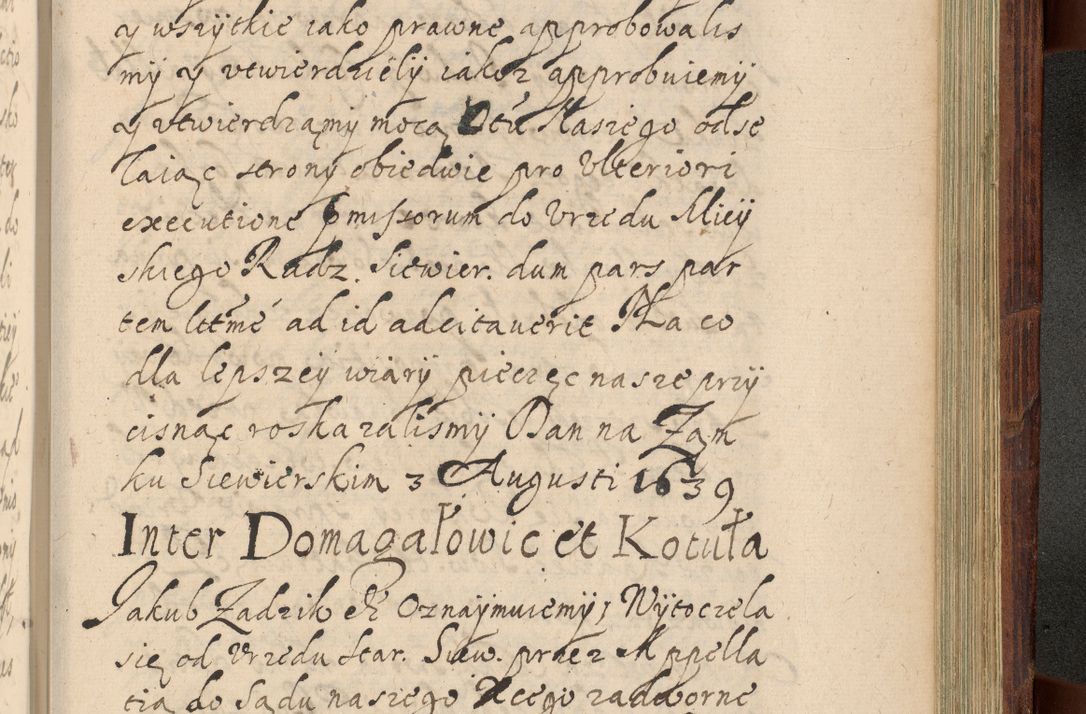 y wszÿtkie iako prawne approbowalis
mÿ y vtwierdzielÿ iakoz approbuiemÿ
y vtwierdząmÿ mocą Naszego odse
łaiąc stronÿ obiedwie pro Vlteriori
executione pmissorum do Vrzedu Mieÿ
skiego Radz. Siewier. dum pars par
tem lttmé ad id adcitauerit Na co
dla lepszeÿ wiarÿ pieczęc nasze przÿ
cisnąc roskazalismÿ Dan na Zam
ku Siewierskim 3 Augusti 1639
Inter Domagałowic et Kotuła
Jakub Zadzik &c Oznaÿmuiemÿ, Wÿtoczela
się od Vrzedu Star. Siew. przez Appella
tią do Sądu naszego zadworne